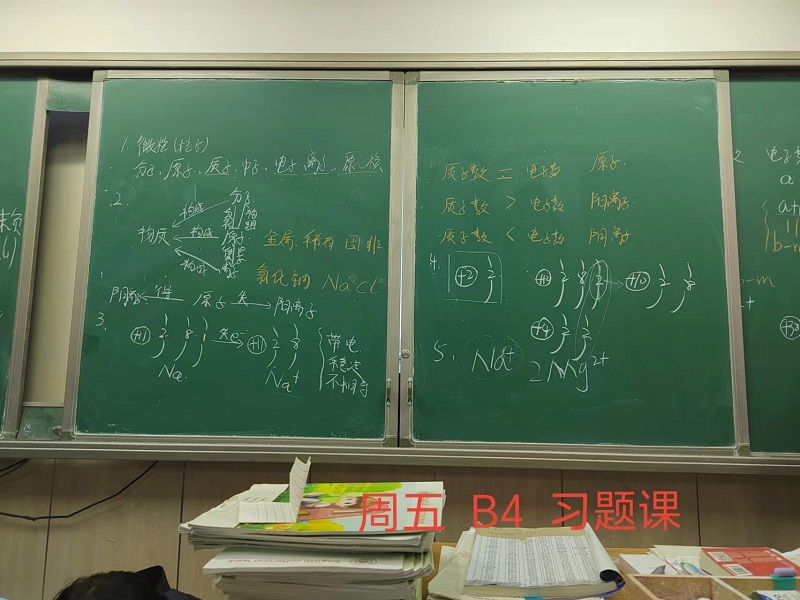 1. 微粒(粒子)
分子、原子、质子、中子、电子、离子、原子核
2
分子
构成
物质 构成 原子
构成
离子
金属 稀有 固 非
氯化钠 NaCl
阴离子 得 原子 失 阳离子
3.
+11 2 8 1 失e⁻ +11 2 8
Na Na⁺
带电
稳定
不相等
质子数 = 电子数 原子
质子数 > 电子数 阳离子
质子数 < 电子数 阴离子
4.
+2 2 +12 2 8 2 +10 2 8
+4 2 2
5. Na⁺ 2Mg²⁺
电子数
a
b-m
周五 B4 习题课